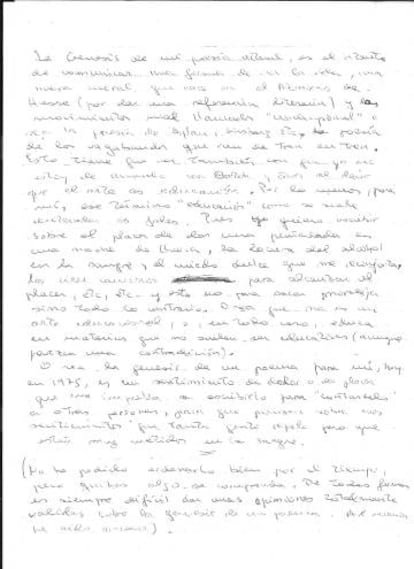 La Génesis de mi poesía actual, es el intento
de comunicar una forma de ver la vida, una
nueva moral, que está en el
Hesse (por dar una referencia literaria) y los
movimientos mal llamados "underground" o
sea la poesía de Dylan, Ginsberg etc, la poesía
de los vagabundos que van de tren en tren.
Esto tiene que ver también con que yo no
estoy de acuerdo con y otros al decir
que el arte es educación. Por lo menos, para
mí, ese término "educación" como se suele
entender es falso. Pues yo quiero escribir
sobre el placer de dar una pincelada en
una noche de lluvia, la locura del alcohol
en la sangre y el miedo dulce que me
los para alcanzar el
placer, etc, etc. y esto no para sacar moraleja
sino todo lo contrario. O sea que no es un
arte educacional, o, en todo caso, educa
en materias que no suelen ser educativas (aunque
parezca una contradicción).
O sea la génesis de un poema para mí, hoy
en 1975, es un sentimiento de dolor o de placer
que me impulsa a escribirlo para "contárselo"
a otras personas, para que piensen sobre esos
sentimientos que tanta gente repele pero que
están muy metidos en la sangre.
(No he podido ordenarlo bien por el tiempo,
pero quizás algo se comprenda. De todas formas
es siempre difícil dar unas opiniones totalmente
válidas sobre la génesis de un poema.
he sido sincero).